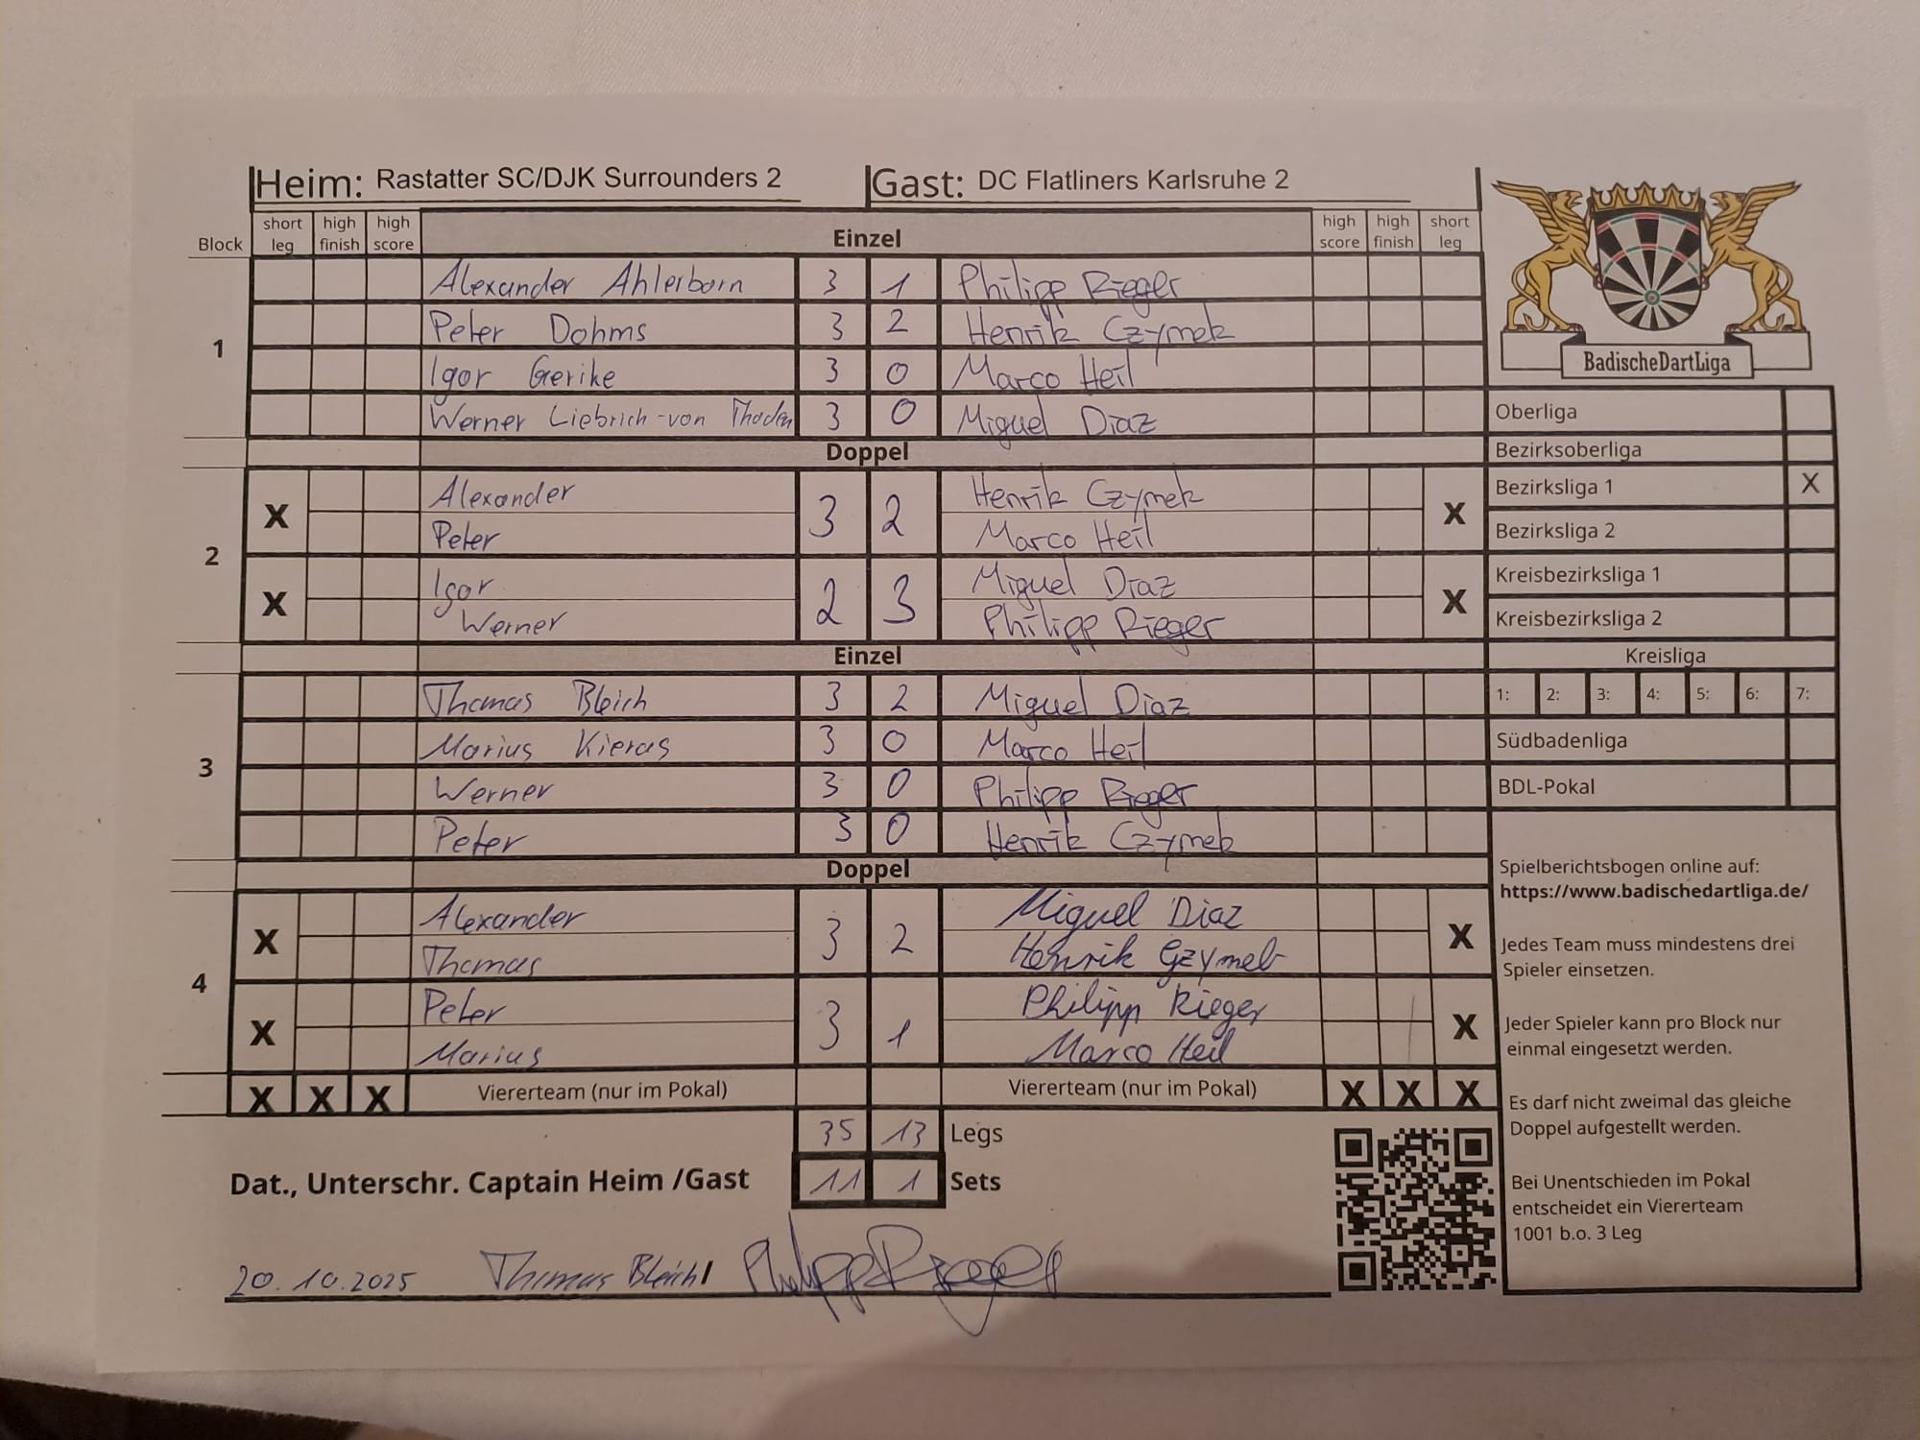 Heim: Rastatter SC/DJK Surrounders 2 Gast: DC Flatliners Karlsruhe 2
Block short leg high finish high score Einzel high score high finish short leg
1
Alexander Ahlerborn 3 1 Philipp Rieger
Peter Dohms 3 2 Henrik Czymek
Igor Gerike 3 0 Marco Heil
Werner Liebrich-von Thaden 3 0 Miguel Diaz
Doppel
2
X Alexander 3 2 Henrik Czymek X
Peter Marco Heil
X Igor 2 3 Miguel Diaz X
Werner Philipp Rieger
Einzel
3
Thomas Bleich 3 2 Miguel Diaz
Marius Kieras 3 0 Marco Heil
Werner 3 0 Philipp Rieger
Peter 3 0 Henrik Czymek
Doppel
4
X Alexander 3 2 Miguel Diaz X
Thomas Henrik Czymek
X Peter 3 1 Philipp Rieger X
Marius Marco Heil
X X X Viererteam (nur im Pokal) Viererteam (nur im Pokal) X X X
35 13 Legs
Dat., Unterschr. Captain Heim /Gast 11 1 Sets
20.10.2025 Thomas Bleich / Philipp Rieger
BadischeDartLiga
Oberliga
Bezirksoberliga
Bezirksliga 1 X
Bezirksliga 2
Kreisbezirksliga 1
Kreisbezirksliga 2
Kreisliga
1: 2: 3: 4: 5: 6: 7:
Südbadenliga
BDL-Pokal
Spielberichtsbogen online auf:
https://www.badischedartliga.de/
Jedes Team muss mindestens drei
Spieler einsetzen.
Jeder Spieler kann pro Block nur
einmal eingesetzt werden.
Es darf nicht zweimal das gleiche
Doppel aufgestellt werden.
Bei Unentschieden im Pokal
entscheidet ein Viererteam
1001 b.o. 3 Leg